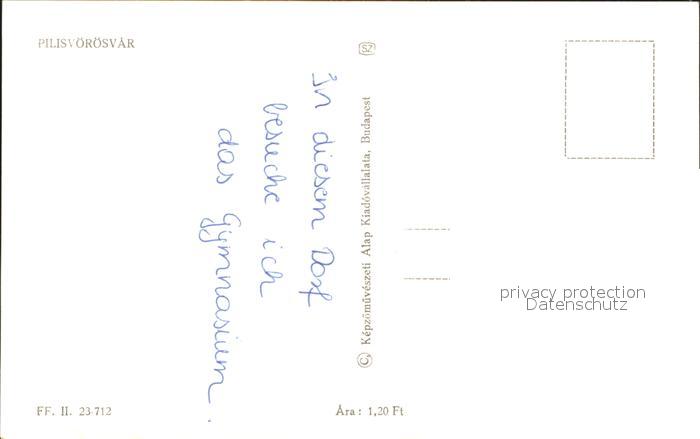 PILISVÖRÖSVÁR
SZ
In diesem Dorf
besuche ich
das Gymnasium.
© Képzőművészeti Alap Kiadóvállalata, Budapest
privacy protection
Datenschutz
FF. II. 23-712
Ára: 1,20 Ft